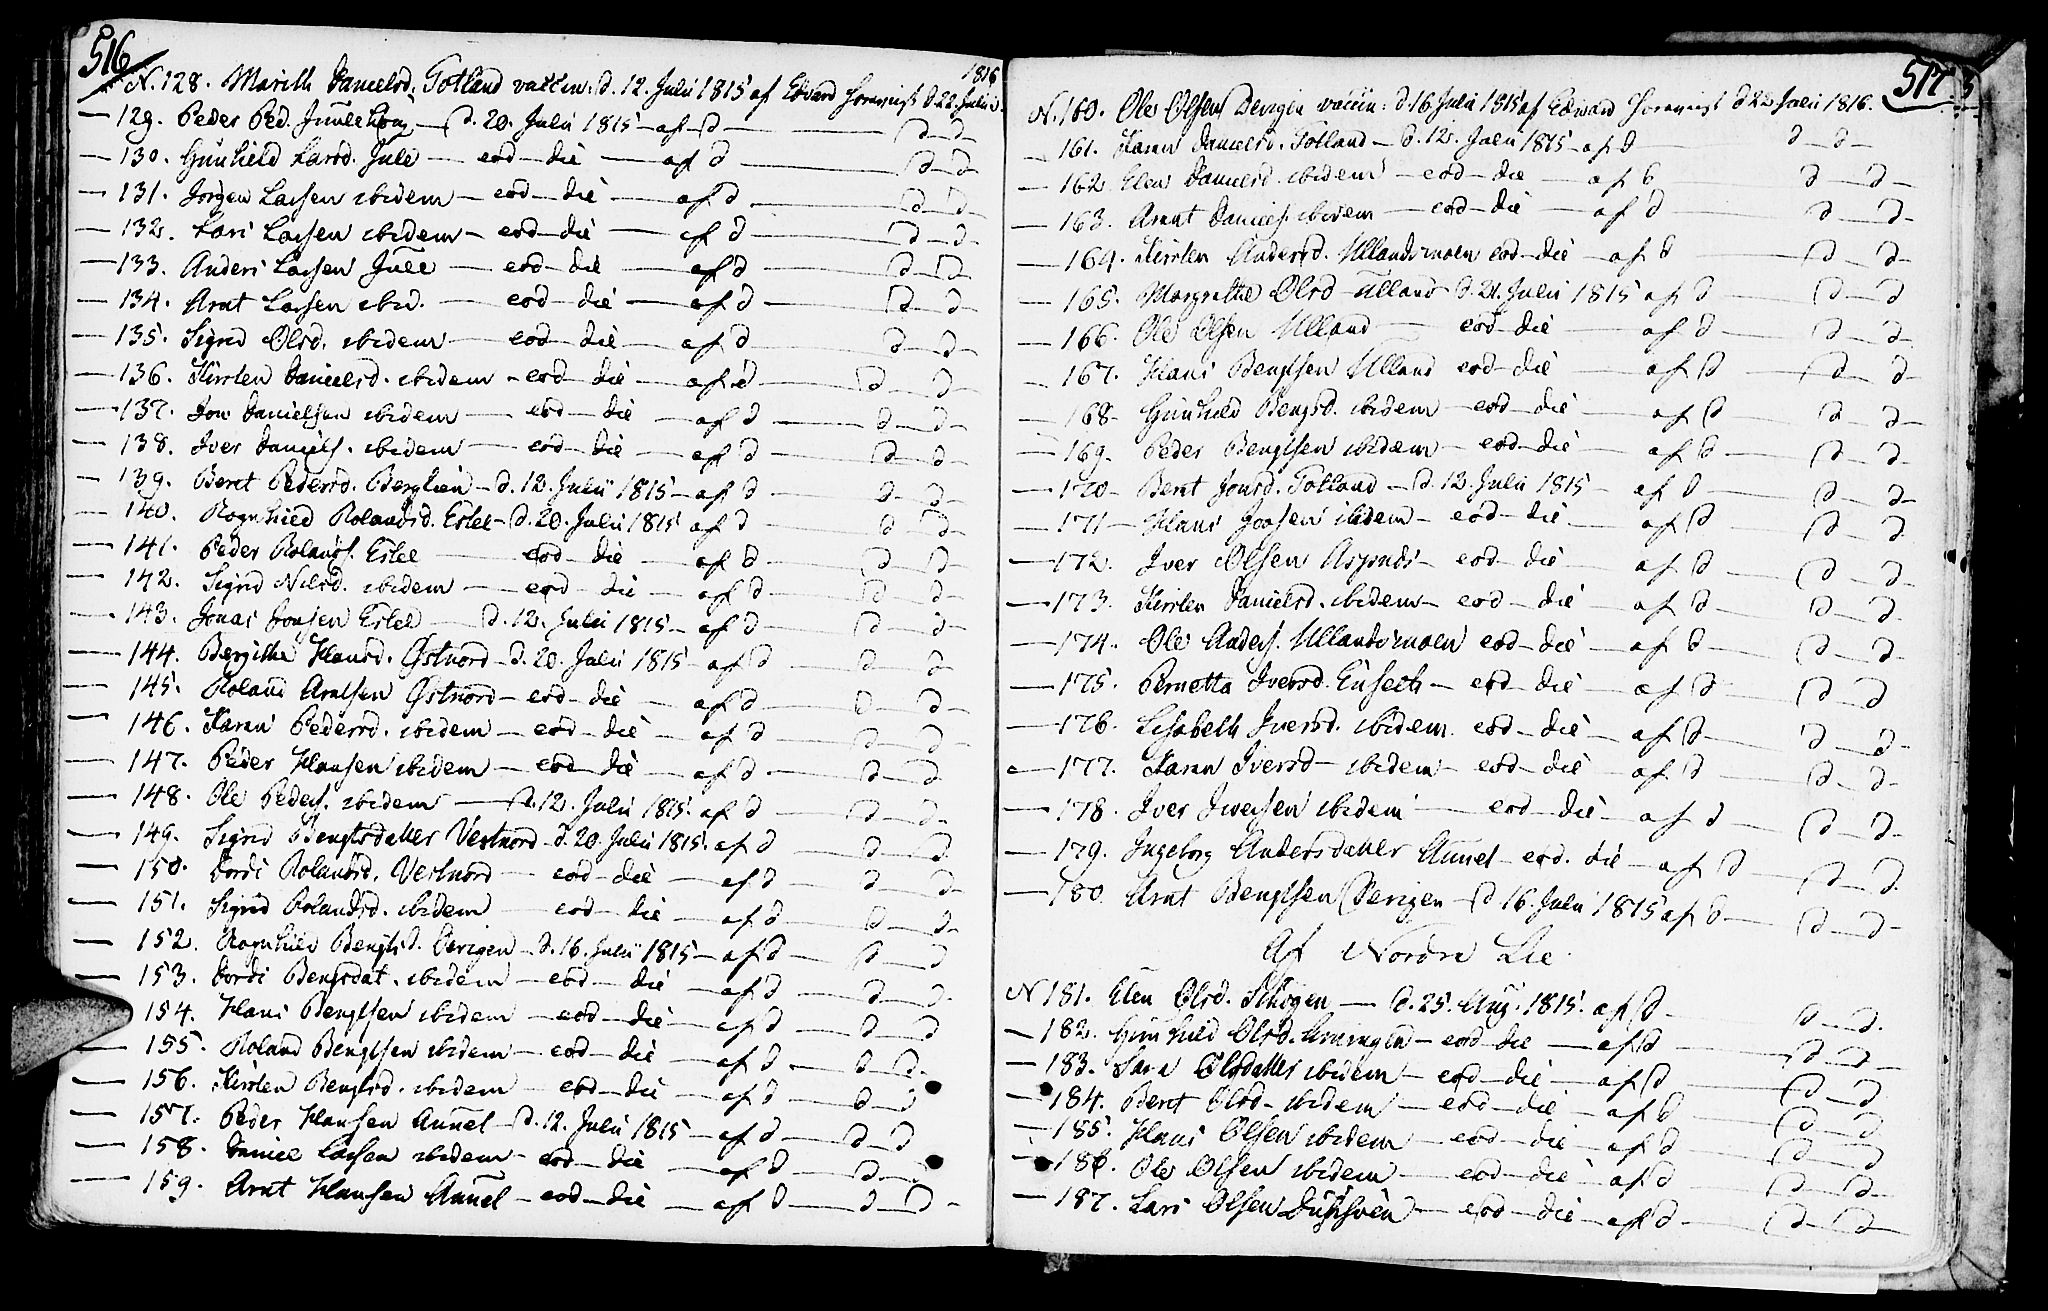 516
1816
N. 128. Marith Danielsd. Totland vaccin: d. 12. Julii 1815 af Edvard Hornqvist d 22 Julii
129. Peder Ped. Juule — d. 20. Julii 1815 — af — d — d — d —
130. Gunhild Larsd. Jule — eod — die — af d — d — d —
131. Jørgen Larsen ibidem — eod — die — af d — d — d —
132. Lars Larsen ibidem — eod — die — af d — d — d —
133. Anders Larsen Jule — eod — die — af d — d — d —
134. Arnt Larsen ibid. — eod — die — af d — d — d —
135. Sigrid Olsd. ibidem — eod — die — af d — d — d —
136. Kirsten Danielsd. ibidem — eod — die — af d — d — d —
137. Jon Danielsen ibidem — eod — die — af d — d — d —
138. Iver Daniels. ibidem — eod — die — af d — d — d —
139. Beret Pedersd. Berglien — d. 12. Julii 1815 — af d — d — d —
140. Rognhild Rolandsd. Estel — d. 20. Julii 1815 af d — d — d —
141. Peder Rolands. Estel — eod — die — af d — d — d —
142. Sigrid Nilsd. ibidem — eod — die — af d — d — d —
143. Jonas Jonsen Estel — d. 12. Julii 1815 — af d — d — d —
144. Bergithe Hansd. Østnord — d. 20. Julii 1815 — af d — d — d
145. Roland Arntsen Østnord — eod — die — af d — d — d —
146. Karen Pedersd. ibidem — eod — die — af d — d — d —
147. Peder Hansen ibidem — eod — die — af d — d — d
148. Ole Peders. ibidem — d. 12. Julii 1815. af d — d — d —
149. Sigrid Bengtsdatter Vestnord — d. 20. Julii 1815. af d — d — d
150. Dordi Rolandsd. Vestnord — eod — die — af d — d — d —
151. Sigrid Rolandsd. ibidem — eod — die — af d — d — d —
152. Rognhild Bengtsd. Derigen — d. 16. Julii 1815 — af d — d — d
153. Dordi Bengtsdat. ibidem — eod — die — af d — d — d.
154. Hans Bengtsen ibidem — eod — die — af d — d — d
155. Roland Bengtsen ibidem — eod — die — af d — d — d.
156. Kirsten Bengtsd. ibidem — eod — die — af d — d — d
157. Peder Hansen Aunel — d. 12. Julii 1815 — af d — d — d
158. Daniel Larsen ibidem — eod — die — af d — d — d
159. Arnt Hansen Aunel — eod — die — af d — d — d —
517
N. 160. Ole Olsen Derigen vaccin: d. 16 Julii 1815 af Edward Hornqvist d 22 Julii 1816.
161. Karen Danielsd. Totland — d. 12. Julii 1815 — af d d — d —
162. Elen Danielsd. ibidem — eod — die — af d d — d —
163. Arnt Daniels. ibidem — eod — die — af d d — d —
164. Kirsten Andersd. Ullandsmoen eod — die — af d — d — d —
165. Margrethe Olsd Ulland d. 21. Julii 1815 af d — d — d
166. Ole Olsen Ulland — eod — die — af d — d — d —
167. Hans Bengtsen Ulland eod — die — af d — d — d —
168. Gunhild Bengtsd. ibidem — eod — die — af d — d — d —
169. Peder Bengtsen ibidem — eod — die — af d — d — d —
170. Beret Jonsd. Totland — d. 12. Julii 1815 — af d — d — d —
171 — Hans Jonsen ibidem — eod — die — af d — d — d
172. Iver Olsen — eod — die — af d — d — d —
173. Kirsten Danielsd. ibidem — eod — die — af d — d — d
174. Ole Anders. Ullandsmoen eod — die — af d — d — d —
175. Pernetta Iversd. — eod — die — af d — d — d
176. Lisabeth Iversd. ibidem eod — die — af d — d — d —
177. Karen Iversd — ibidem — eod — die — af d — d — d —
178. Iver Iversen ibidem — eod — die — af d — d — d —
179. Ingeborg Andersdatter Aunel — eod. die — af d — d — d.
180. Arnt Bengtsen Derigen — d 16. Julii 1815 af d — d — d —
Af Nordre Lie
N 181. Elen Olsd. Schogen — d. 25. Aug. 1815. af d — d — d.
182. Gunhild Olsd. — eod — die — af d — d — d —
183. Olsdatter ibidem — eod — die — af d — d — d
184. Beret Olsd — ibidem — eod — die — af d — d — d
185. Hans Olsen ibidem — eod — die — af d — d — d
186. Ole Olsen ibidem — eod — die — af d — d — d —
187. Lars Olsen — eod — die — af d — d — d —